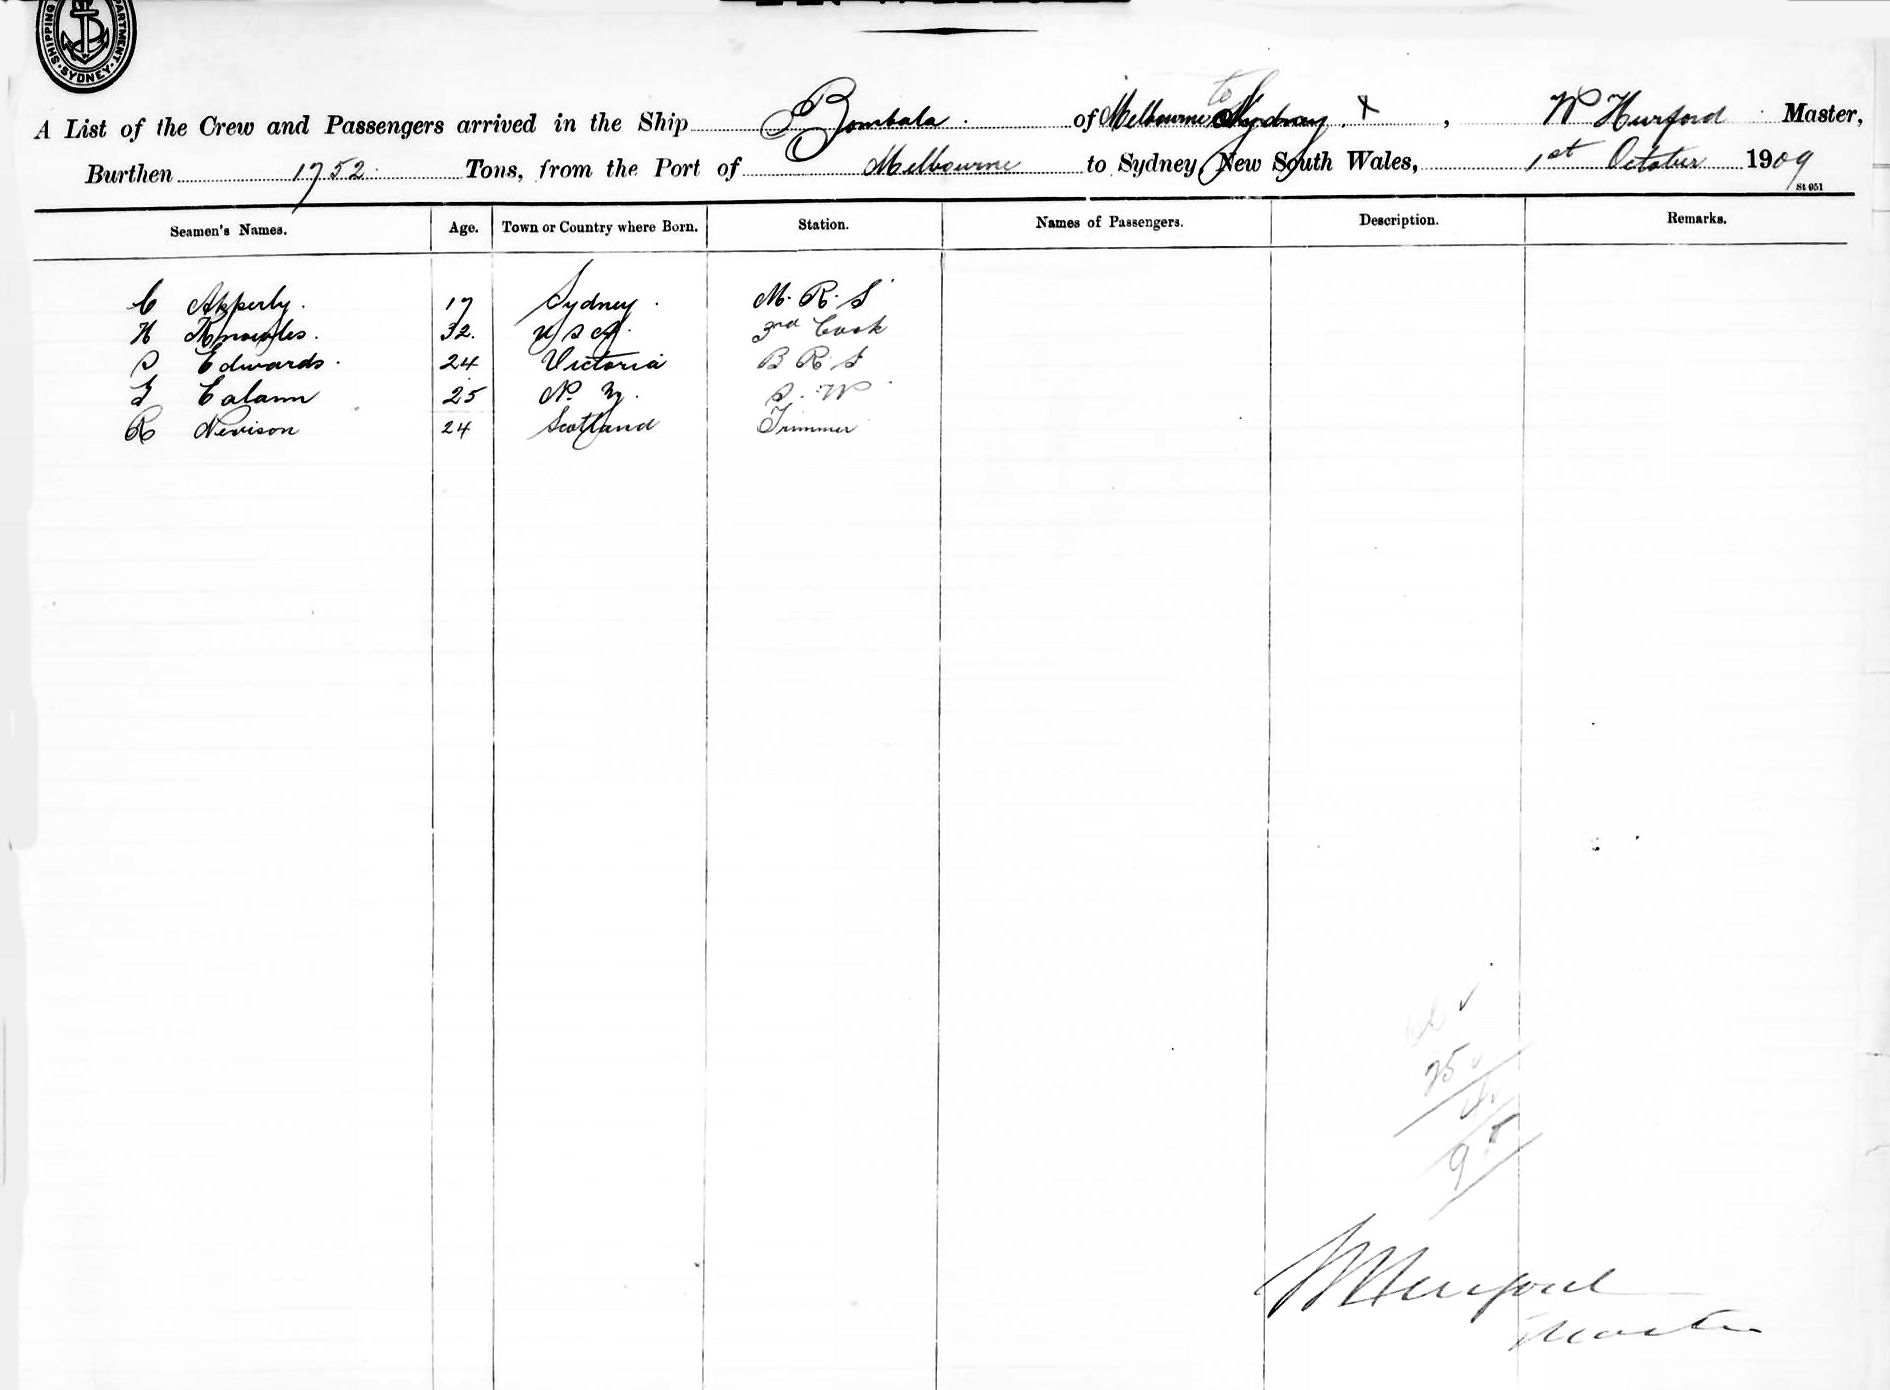 SHIPPING DEPARTMENT · SYDNEY ·
to
A List of the Crew and Passengers arrived in the Ship Bombala. of Melbourne Sydney. X, W Hurford Master,
Burthen 1752. Tons, from the Port of Melbourne to Sydney, New South Wales, 1st October 1909
St 051
Seamen's Names. Age. Town or Country where Born. Station. Names of Passengers. Description. Remarks.
C Apperly. 17 Sydney. M. R. S
H Knowles. 32. U S A. 3rd Cook
S Edwards. 24 Victoria B R S
Calann 25 N. Z. S. W.
R Nevison 24 Scotland Trimmer
25
9
W Hurford
Master